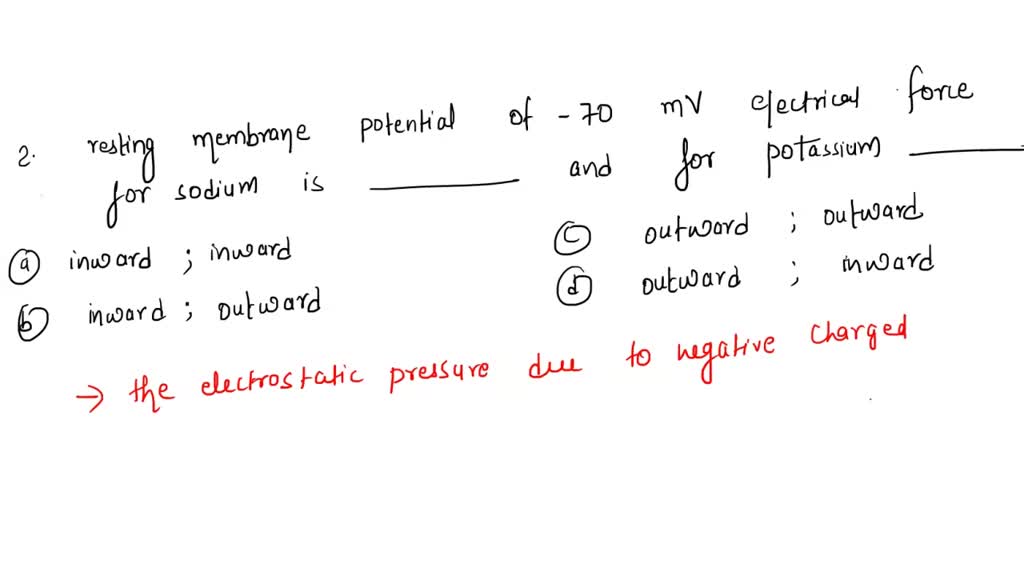 2. resting membrane potential of -70 mV electrical force
for sodium is ______ and for potassium ______
(a) inward ; inward
(b) inward ; outward
(c) outward ; outward
(d) outward ; inward
→ the electrostatic pressure due to negative charged